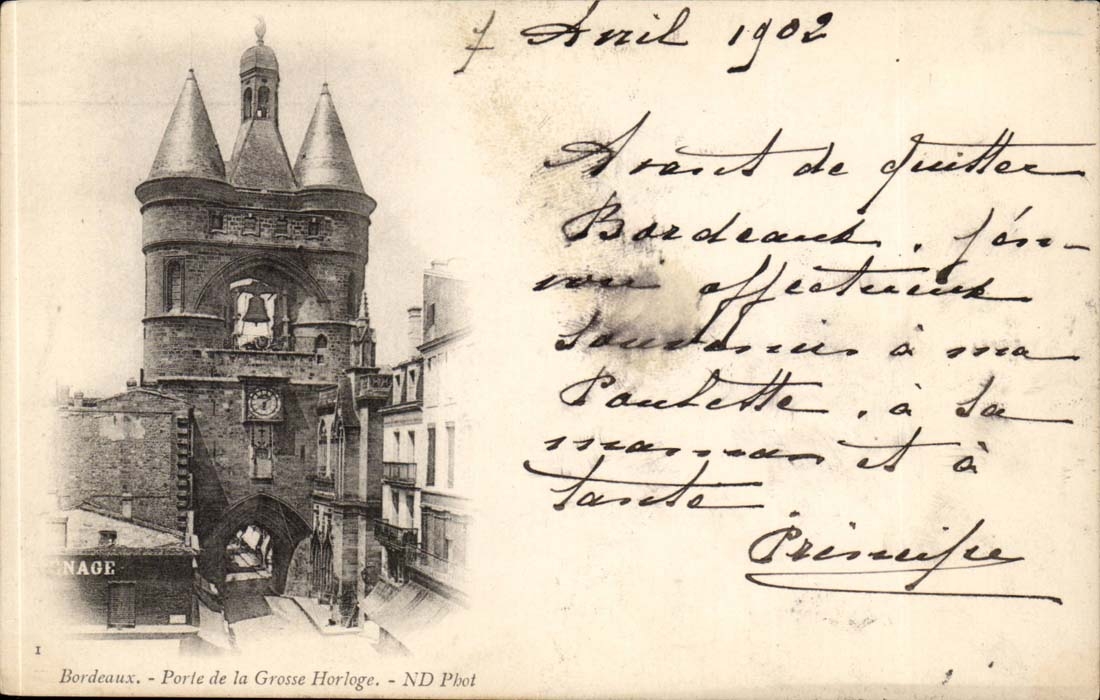 7 Avril 1902
Avant de quitter
Bordeaux, j'en-
voie affectueux
souvenirs à ma
Poulette, à sa
maman et à
tante
Principe
NAGE
1
Bordeaux. - Porte de la Grosse Horloge. - ND Phot